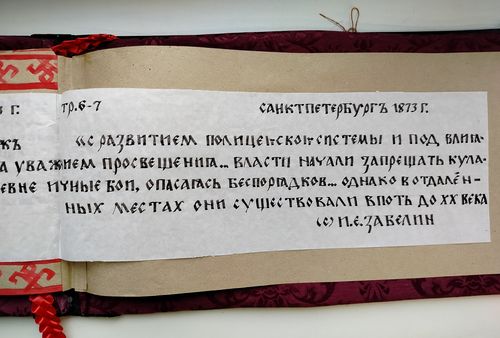 3 Г.
ЖЪ
А УВАЖ
ЕВНЕ И
тр.6-7 САНКТПЕТЕРБУРГЪ 1873 Г.
«С РАЗВИТИЕМ ПОЛИЦЕЙСКОЙ СИСТЕМЫ И ПОД ВЛИЯ-
НИЕМ ПРОСВЕЩЕНИЯ... ВЛАСТИ НАЧАЛИ ЗАПРЕЩАТЬ КУЛА-
ЧНЫЕ БОИ, ОПАСАЯСЬ БЕСПОРЯДКОВ... ОДНАКО В ОТДАЛЁН-
НЫХ МЕСТАХ ОНИ СУЩЕСТВОВАЛИ ВПОТЬ ДО XX ВЕКА
(С) И.Е.ЗАБЕЛИН